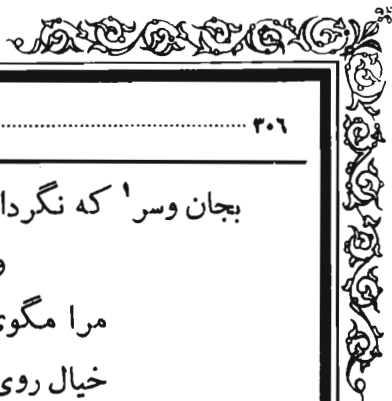 ٣٠٦
بجان وسر١ که نگردا
و
مرا مگوی
خیال روی